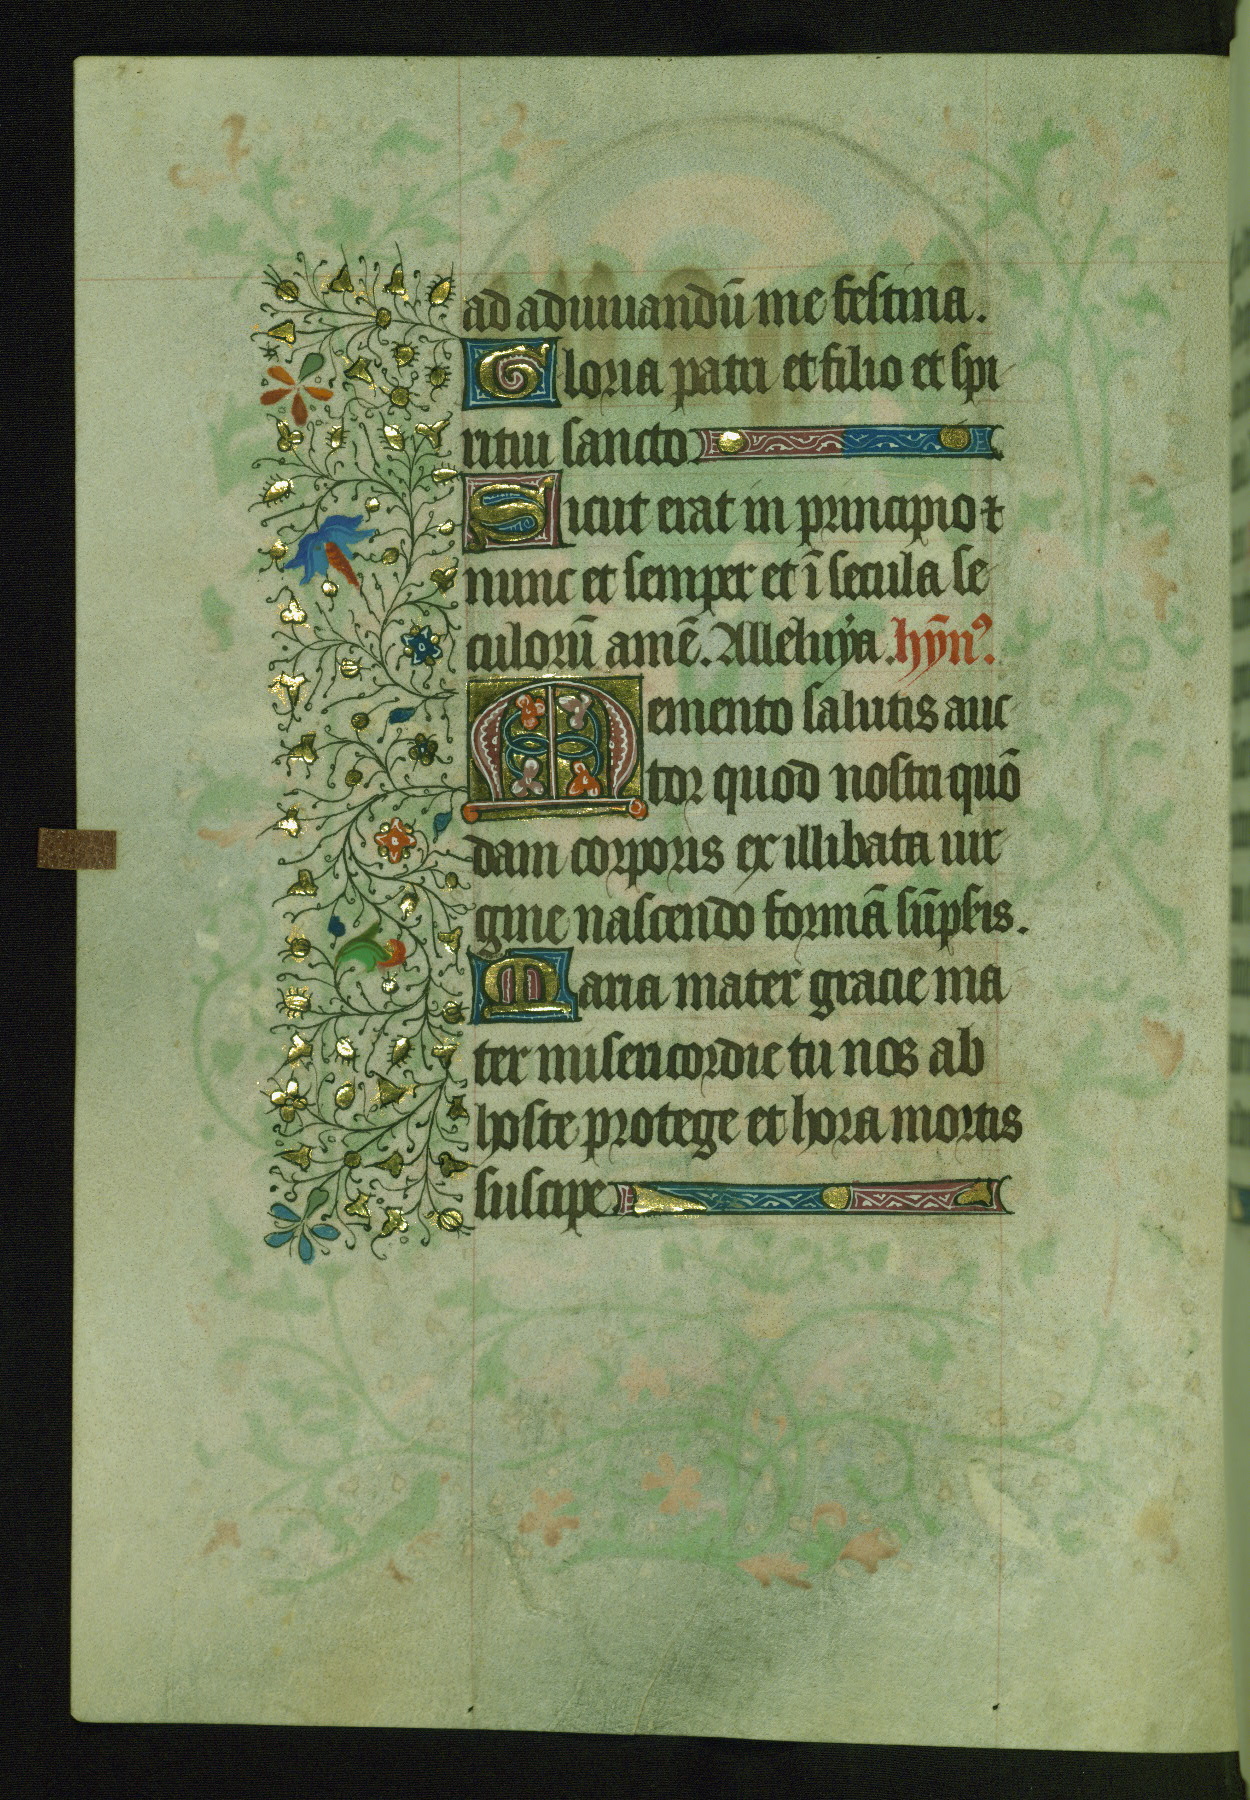 ad adiuuandū me festina.
Gloria patri et filio et spi
ritui sancto
Sicut erat in principio ⁊
nunc et semper et ī secula se
culorū amē. Alleluya. hȳn⁹.
Memento salutis auc
tor quod nostri quō
dam corporis ex illibata uir
gine nascendo formā sūpseis.
Maria mater gracie ma
ter misericordie tu nos ab
hoste protege et hora mortis
suscipe